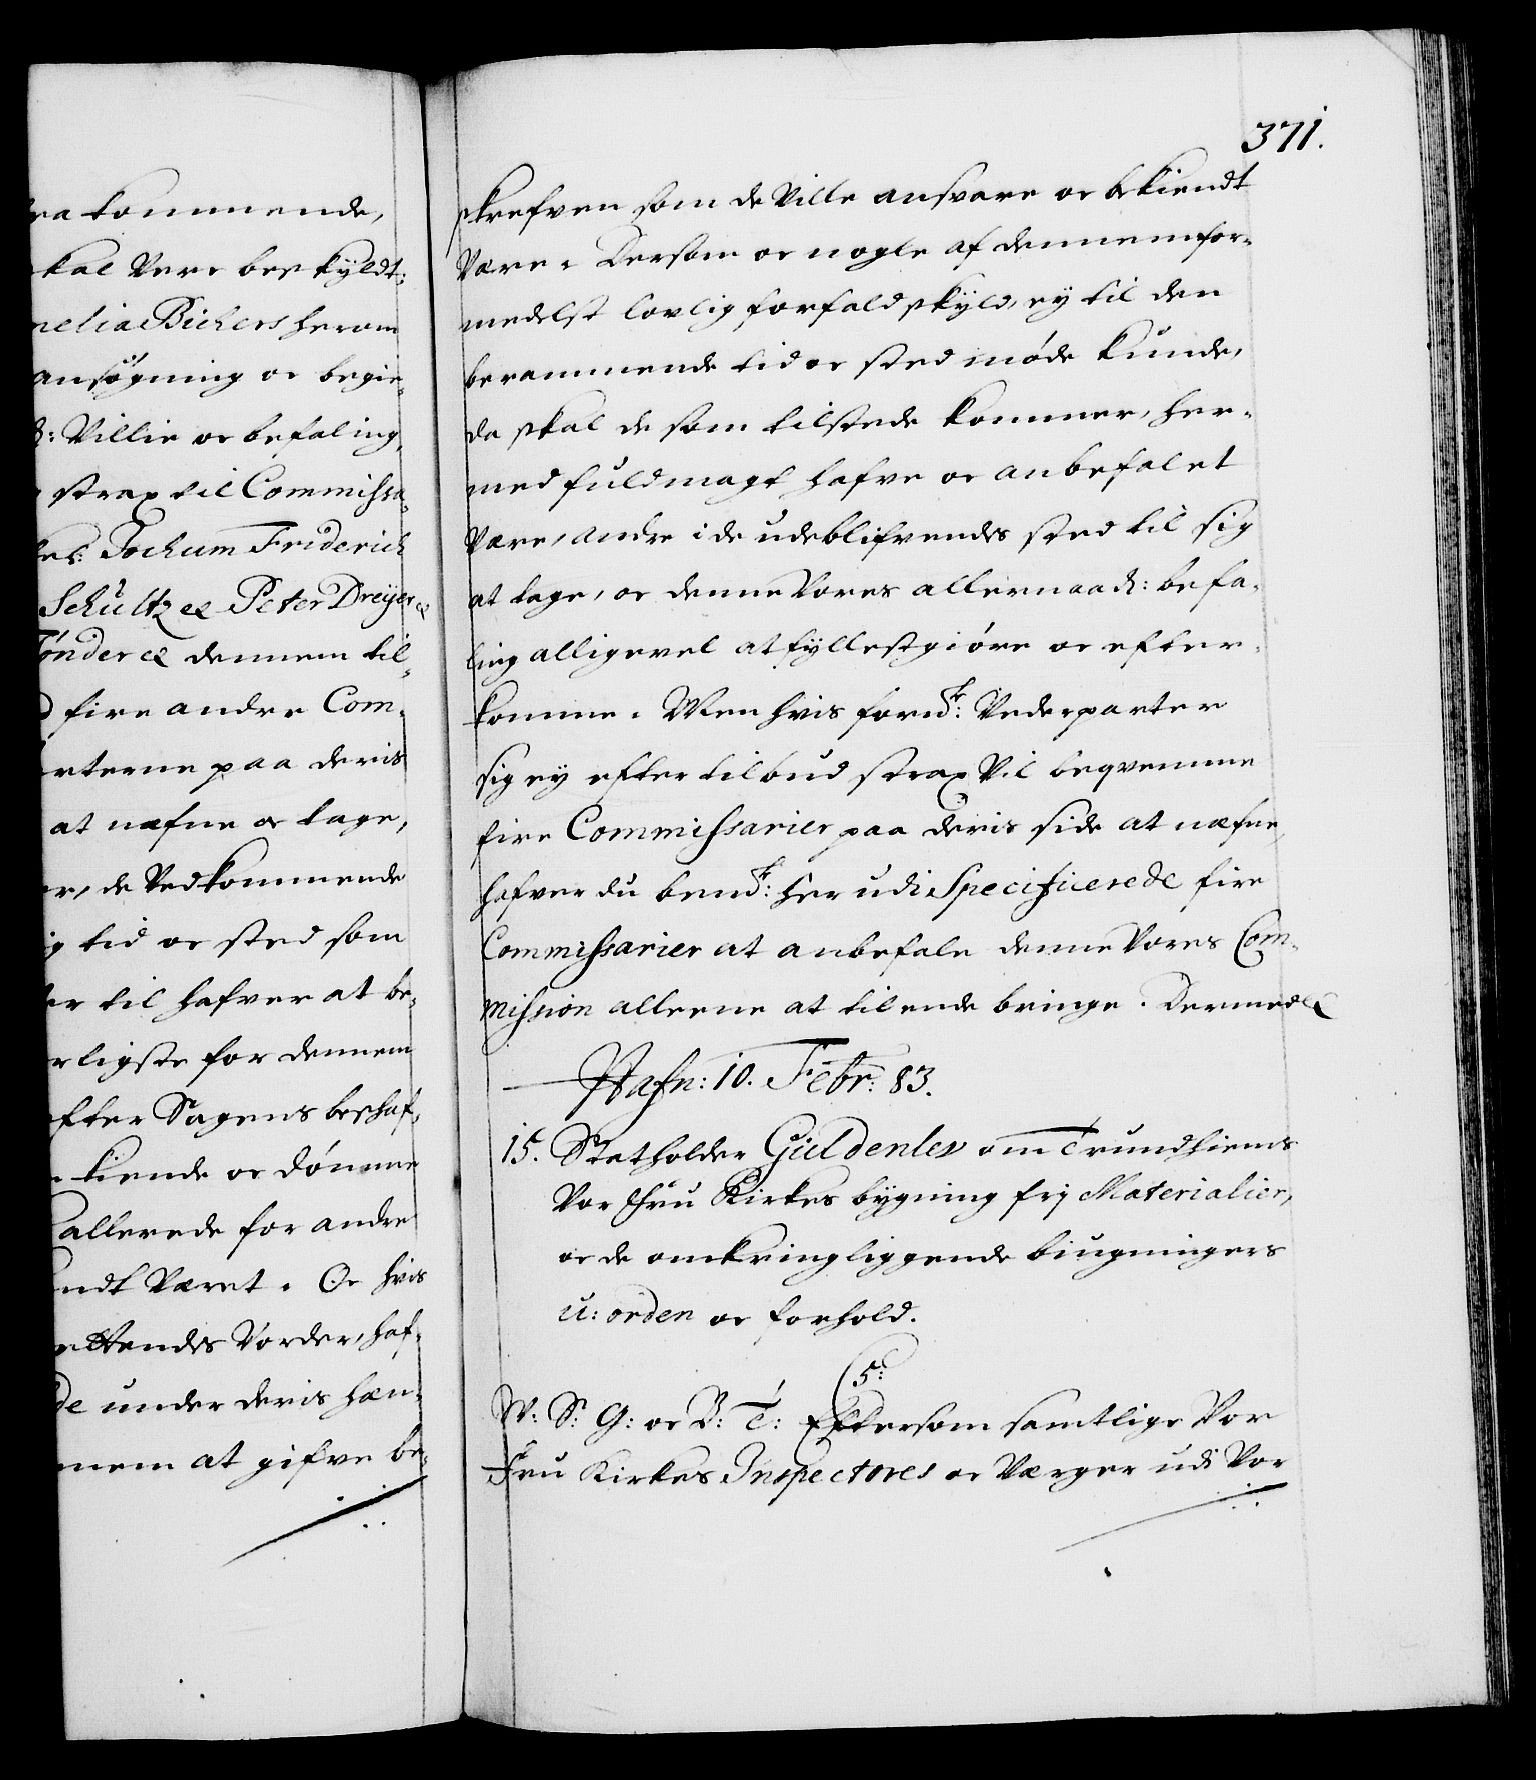 ra kommende,
kal Vere beskyldt:
nelia Bichers herom
ansøgning oc begie¬
B: Villie oc befaling,
strax til Commissa¬
Jochum Friderich
Schultz &c Peter Dreyer &c
Tønder &c dennem til¬
fire andre Com¬
rterne paa deris
at nefne oc tage,
er, de Vedkommende
ig tid oc sted som
er til hafver at be¬
rligste for dennem
efter Sagens beskaf¬
kiende oc dømme
allerede for andre
ndt Været. Oc hvis
Vorder, haf¬
de under deris hæn¬
nem at gifve be¬
371.
skrefven som de Ville ansvare oc bekiendt
Være. Dersom oc nogle af dennem for¬
medelst lovlig forfald skyld, ey til den
berammende tid oc sted møde kunde,
da skal de som tilstede kommer, her¬
med fuldmagt hafve oc anbefalet
Være, andre i de udeblifvendes sted til sig
at tage, oc denne Vores allernaad: befa¬
ling alligevel at fyllestgiøre oc efter¬
komme. Men hvis fornd: Vederparter
sig ey efter tilbud strax Vil beqvemme
fire Commissarier paa deris side at næfne,
hafver du bemd: her udi Specificerede fire
Commissarier at anbefale denne Vores Com¬
mission alleene at til ende bringe. Dermed &
Hafn: 10. Febr: 83.
15. Statholder Güldenlev om Trundhiems
Vor Fru Kirkes bygning frj Materialier,
oc de omkringliggende biugningers
u: orden oc forhold.
5:
W: S: G: oc B: T: Eftersom samtlige Vor
Fru Kirkes Inspectores oc Værger udi Vor